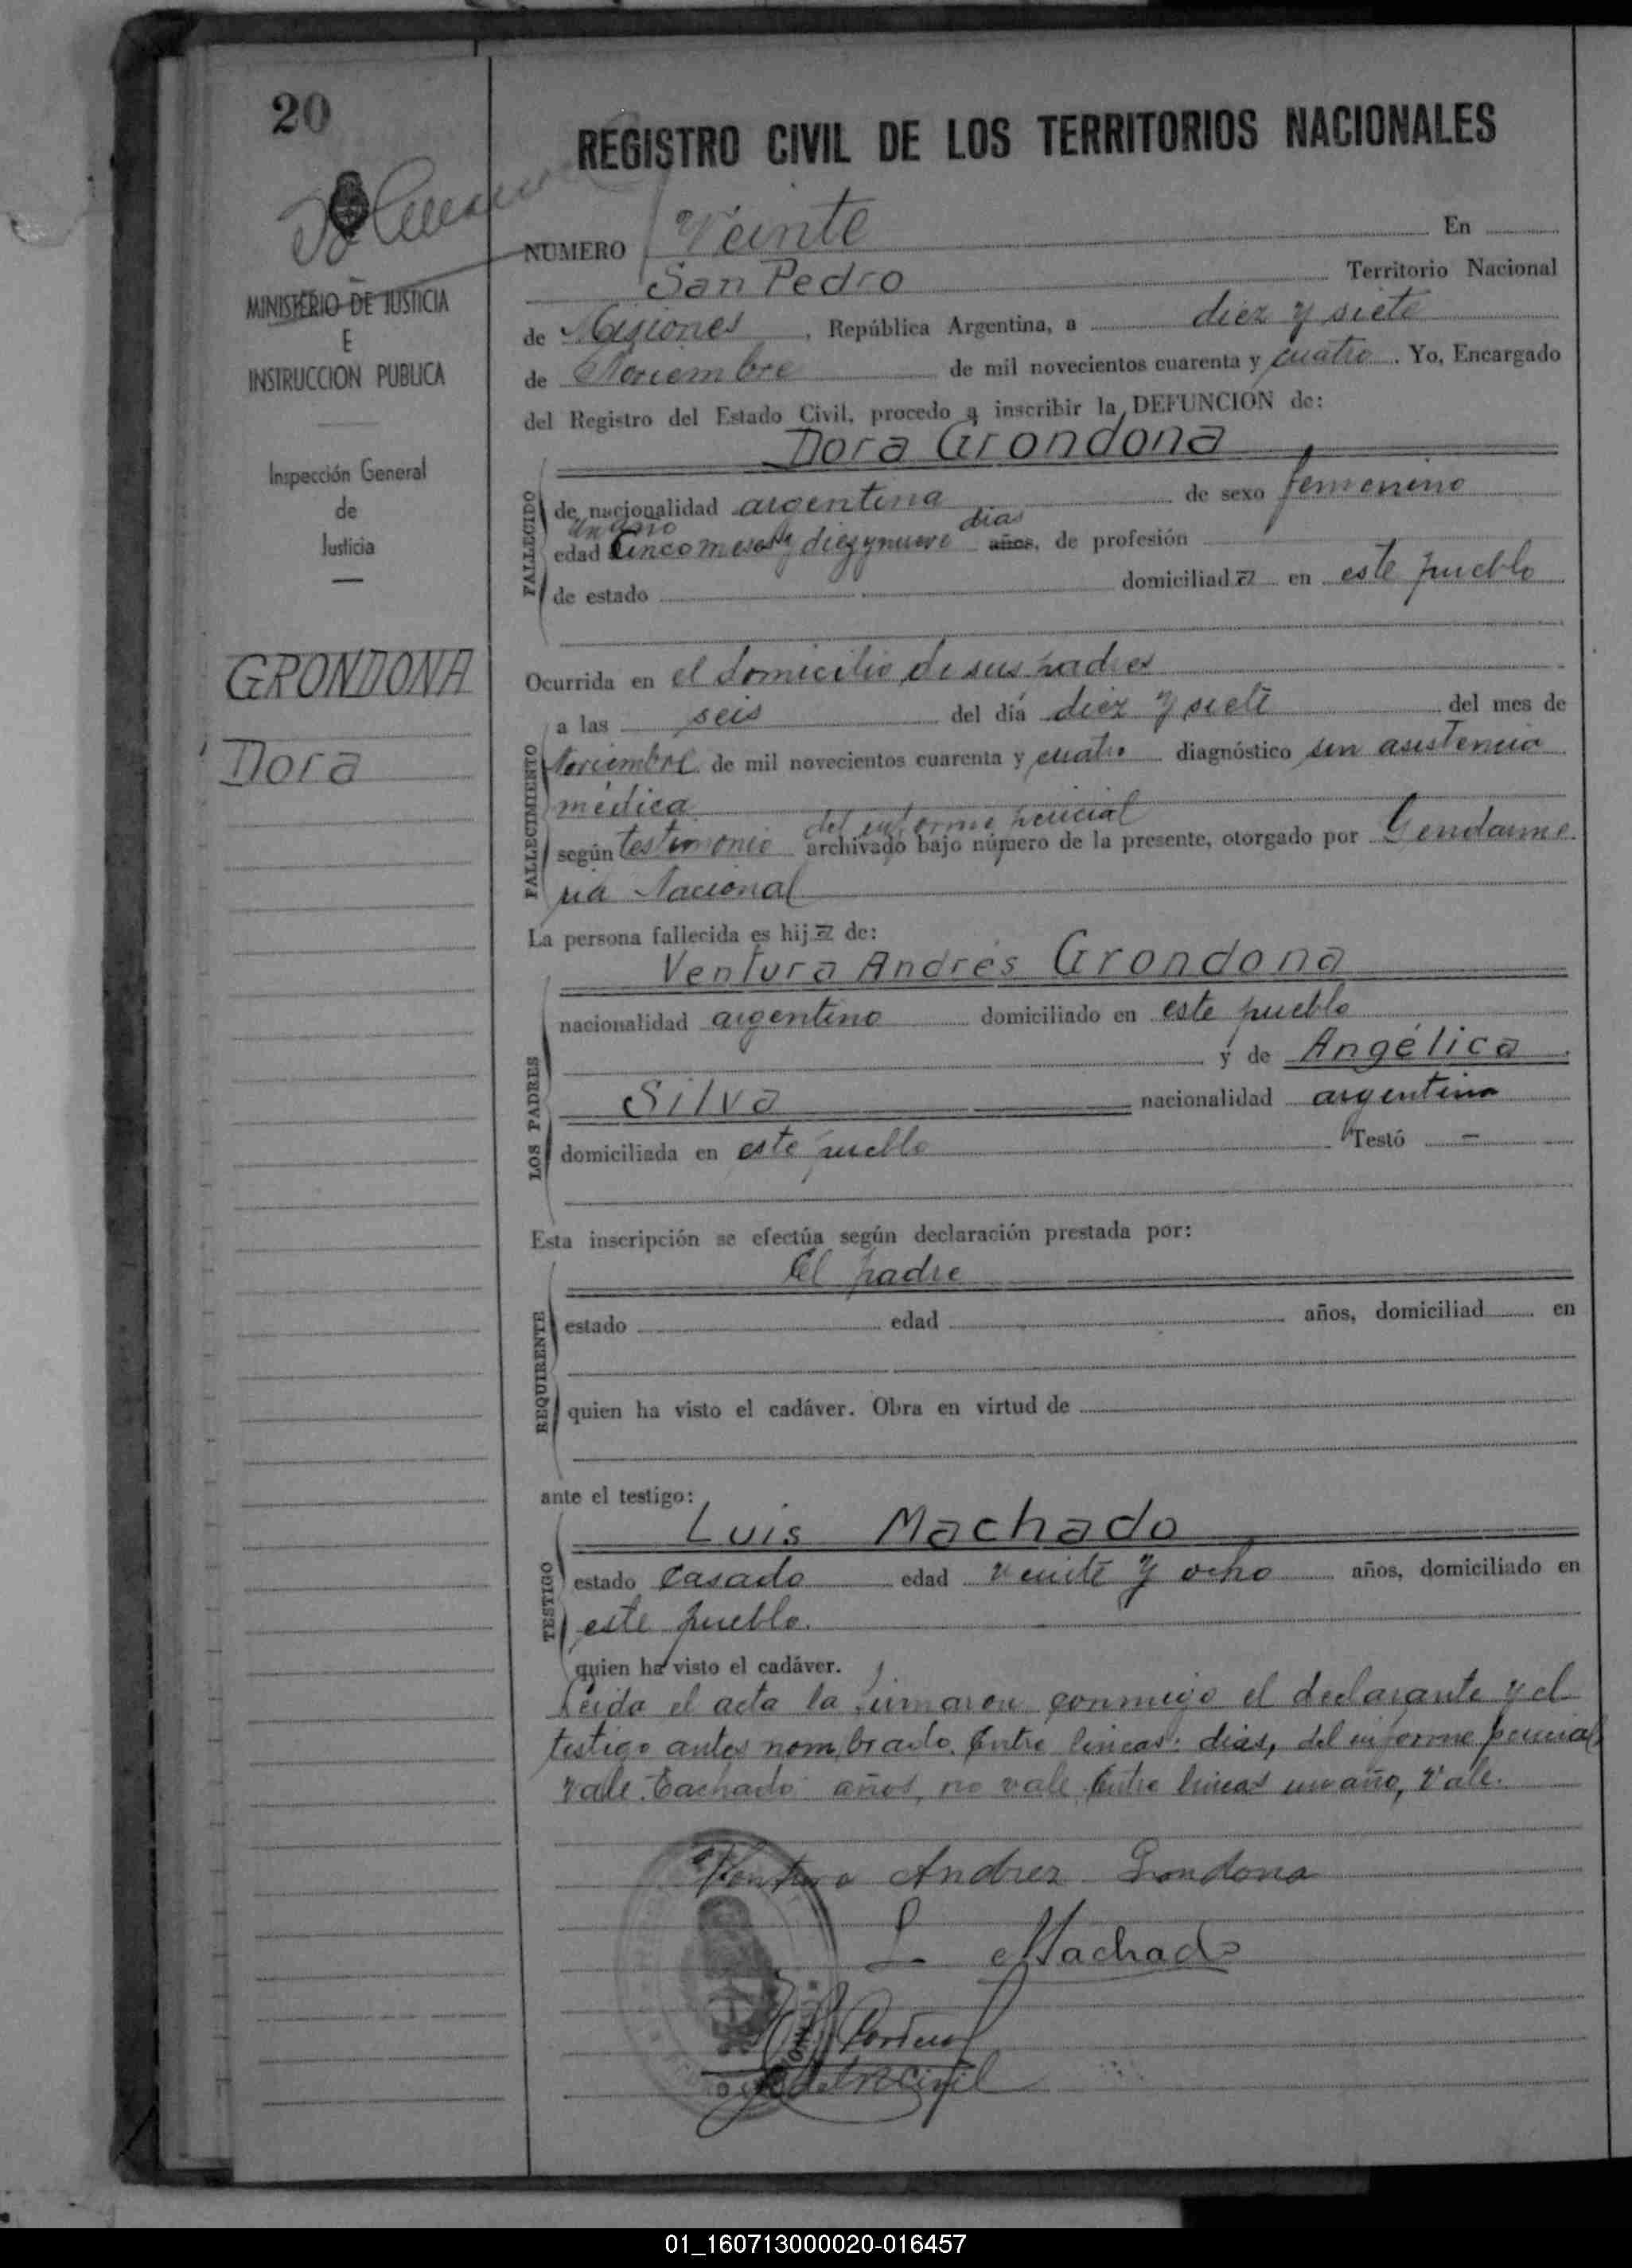 20
MINISTERIO DE JUSTICIA
E
INSTRUCCION PUBLICA
Inspección General
de
Justicia
GRONDONA
Dora
REGISTRO CIVIL DE LOS TERRITORIOS NACIONALES
NUMERO Veinte En
San Pedro Territorio Nacional
de Misiones, República Argentina, a diez y siete
de Noviembre de mil novecientos cuarenta y cuatro. Yo, Encargado
del Registro del Estado Civil, procedo a inscribir la DEFUNCION de:
Dora Grondona
FALLECIDO
de nacionalidad argentina de sexo femenino
un año días
edad Cinco meses y diez y nueve años, de profesión
de estado domiciliada en este pueblo
Ocurrida en el domicilio de sus padres
FALLECIMIENTO
a las seis del día diez y siete del mes de
Noviembre de mil novecientos cuarenta y cuatro diagnóstico sin asistencia
médica
del informe pericial
según testimonio archivado bajo número de la presente, otorgado por Gendarme
ria Nacional
La persona fallecida es hija de:
Ventura Andrés Grondona
LOS PADRES
nacionalidad argentino domiciliado en este pueblo
y de Angélica
Silva nacionalidad argentina
domiciliada en este pueblo Testó —
Esta inscripción se efectúa según declaración prestada por:
El padre
REQUIRENTE
estado edad años, domiciliad en
quien ha visto el cadáver. Obra en virtud de
ante el testigo:
Luis Machado
TESTIGO
estado Casado edad veinte y ocho años, domiciliado en
este pueblo.
quien ha visto el cadáver.
Leida el acta la firmaron conmigo el declarante y el
testigo antes nombrado. Entre lineas: dias, del informe pericial
vale. Tachado: años, no vale. Entre lineas un año, Vale.
Ventura Andres Grondona
L Machado
01_160713000020-016457